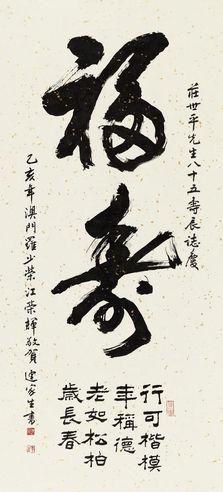 莊世平先生八十五壽辰誌慶
福壽
行可楷模
年稱德
老如松柏
歲長春
乙亥年澳門羅少榮江榮輝敬賀
家生書